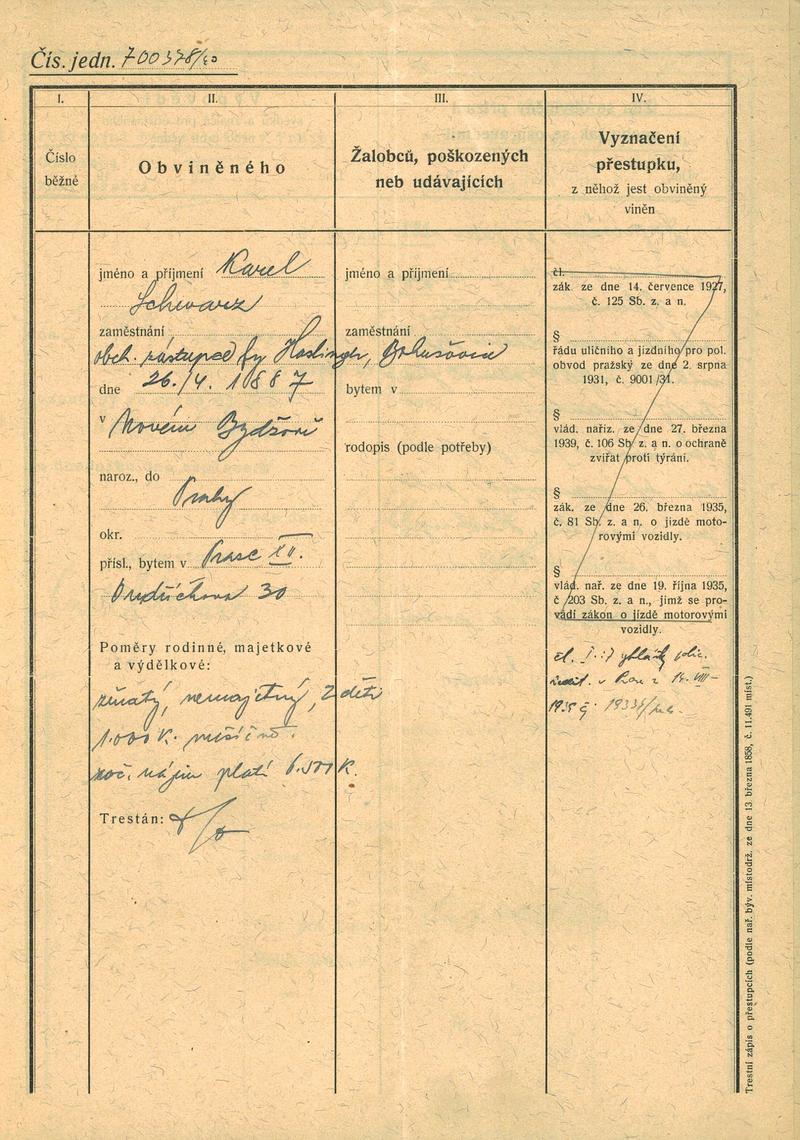 Čís. jedn. 700378/40
I.
II.
III.
IV.
Číslo
běžné
Obviněného
Žalobců, poškozených
neb udávajících
Vyznačení
přestupku,
z něhož jest obviněný
viněn
jméno a příjmení Karel
Schwarz
zaměstnání
obch. zástupce fy Haslinger, Bohušovice
dne 26./4. 1887
v Novém Bydžově
naroz., do
Prahy
okr.
přísl., bytem v Praze XII.
30
Poměry rodinné, majetkové
a výdělkové:
ženatý, nemajetný, 2 děti
1.000 K. měsíčně.
roč. nájem platí 6.500 K.
Trestán:
jméno a příjmení
zaměstnání
bytem v
rodopis (podle potřeby)
čl.
zák. ze dne 14. července 1927,
č. 125 Sb. z. a n.
§
řádu uličního a jízdního pro pol.
obvod pražský ze dne 2. srpna
1931, č. 9001/31.
§
vlád. nařiz. ze dne 27. března
1939, č. 106 Sb. z. a n. o ochraně
zvířat proti týrání.
§
zák. ze dne 26. března 1935,
č. 81 Sb. z. a n. o jízdě moto-
rovými vozidly.
§
vlád. nař. ze dne 19. října 1935,
č 203 Sb. z. a n., jímž se pro-
vádí zákon o jízdě motorovými
vozidly.
čl. vyhlášky polic.
ředit. v Praze z VIII–
Trestní zápis o přestupcích (podle nař. býv. místodrž. ze dne 13. března 1858, č. 11.491 míst.)